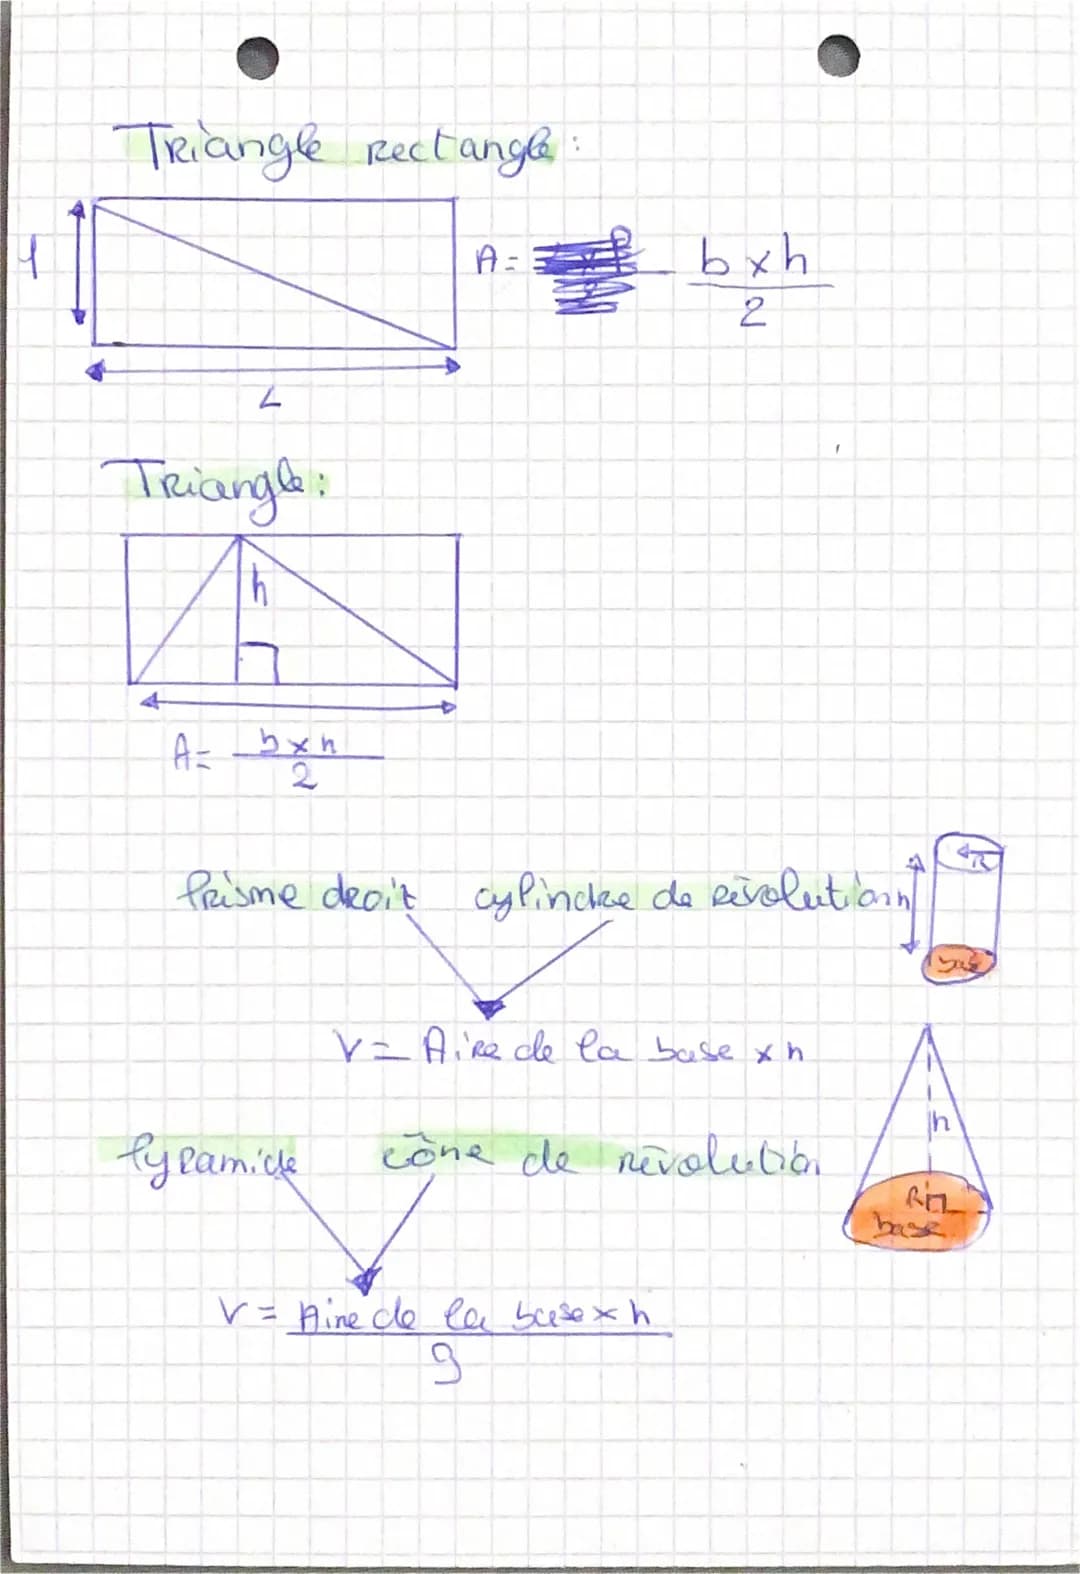 Triangle rectangle :
l
A = b x h
2
L
Triangle :
h
A = b x h
2
Prisme droit cylindre de révolution
h
R
base
V = Aire de la base x h
h
Pyramide cône de révolution
R
base
V = Aire de la base x h
3